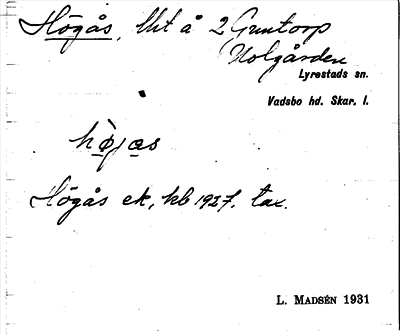 Högås, lht å 2 Guntorp
Holgården
Lyrestads sn.
Vadsbo hd. Skar. l.
hø̀jas
Högås ek, kb 1927. tax.
L. MADSÉN 1931